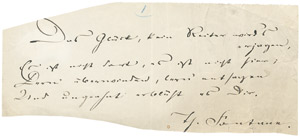 1
Das Glück, kein Reiter wird's
erjagen,
Es ist nicht dort, es ist nicht hier;
Lern' überwinden, lern' entsagen
Und ungeahnt erblüht es Dir.
Th. Fontane.